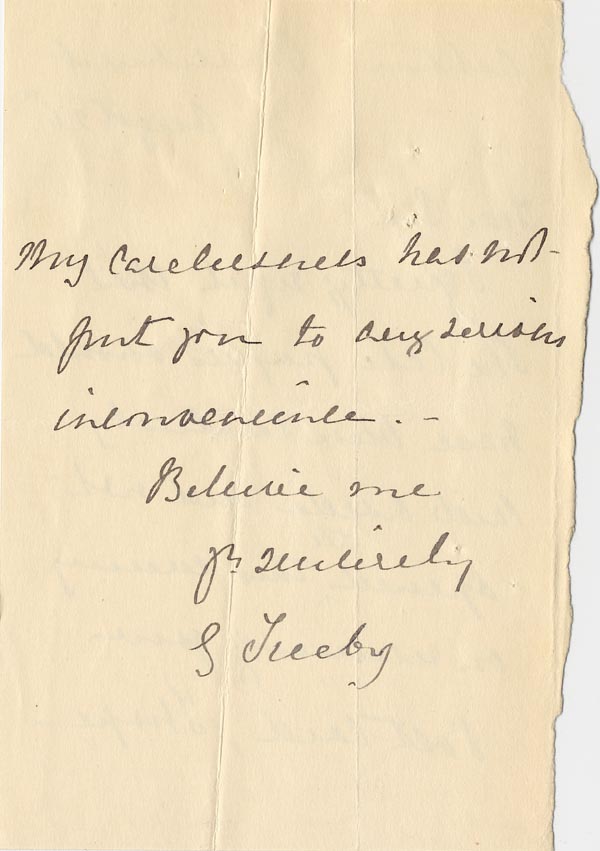 My carelessness has not
put you to any serious
inconvenience. –
Believe me
yrs sincerely
G Treeby